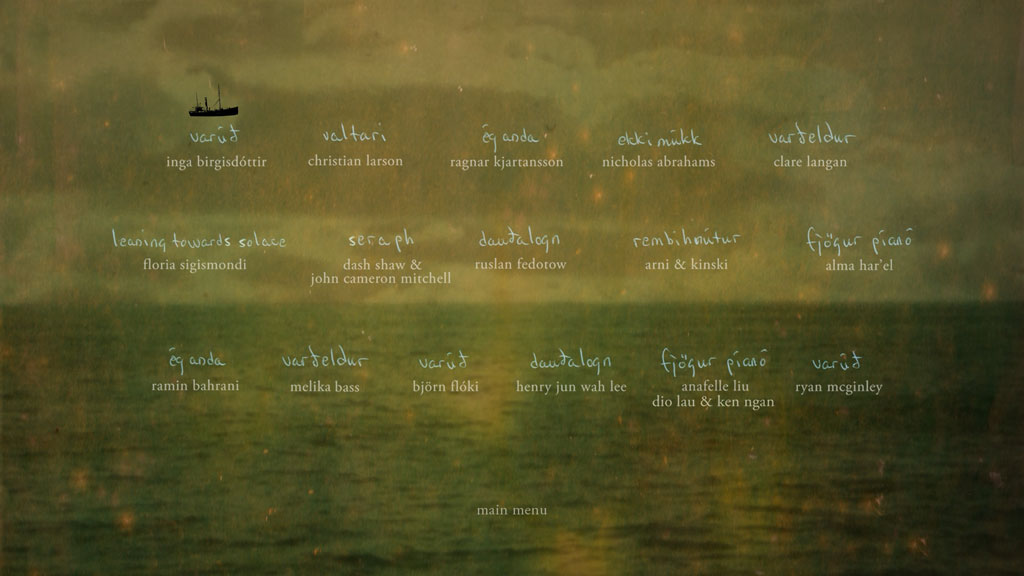 varúð valtari ég anda ekki múkk varðeldur
inga birgisdóttir christian larson ragnar kjartansson nicholas abrahams clare langan
leaning towards solace seraph dauðalogn rembihnútur fjögur píanó
floria sigismondi dash shaw & ruslan fedotow arni & kinski alma har'el
john cameron mitchell
ég anda varðeldur varúð dauðalogn fjögur píanó varúð
ramin bahrani melika bass björn flóki henry jun wah lee anafelle liu ryan mcginley
dio lau & ken ngan
main menu